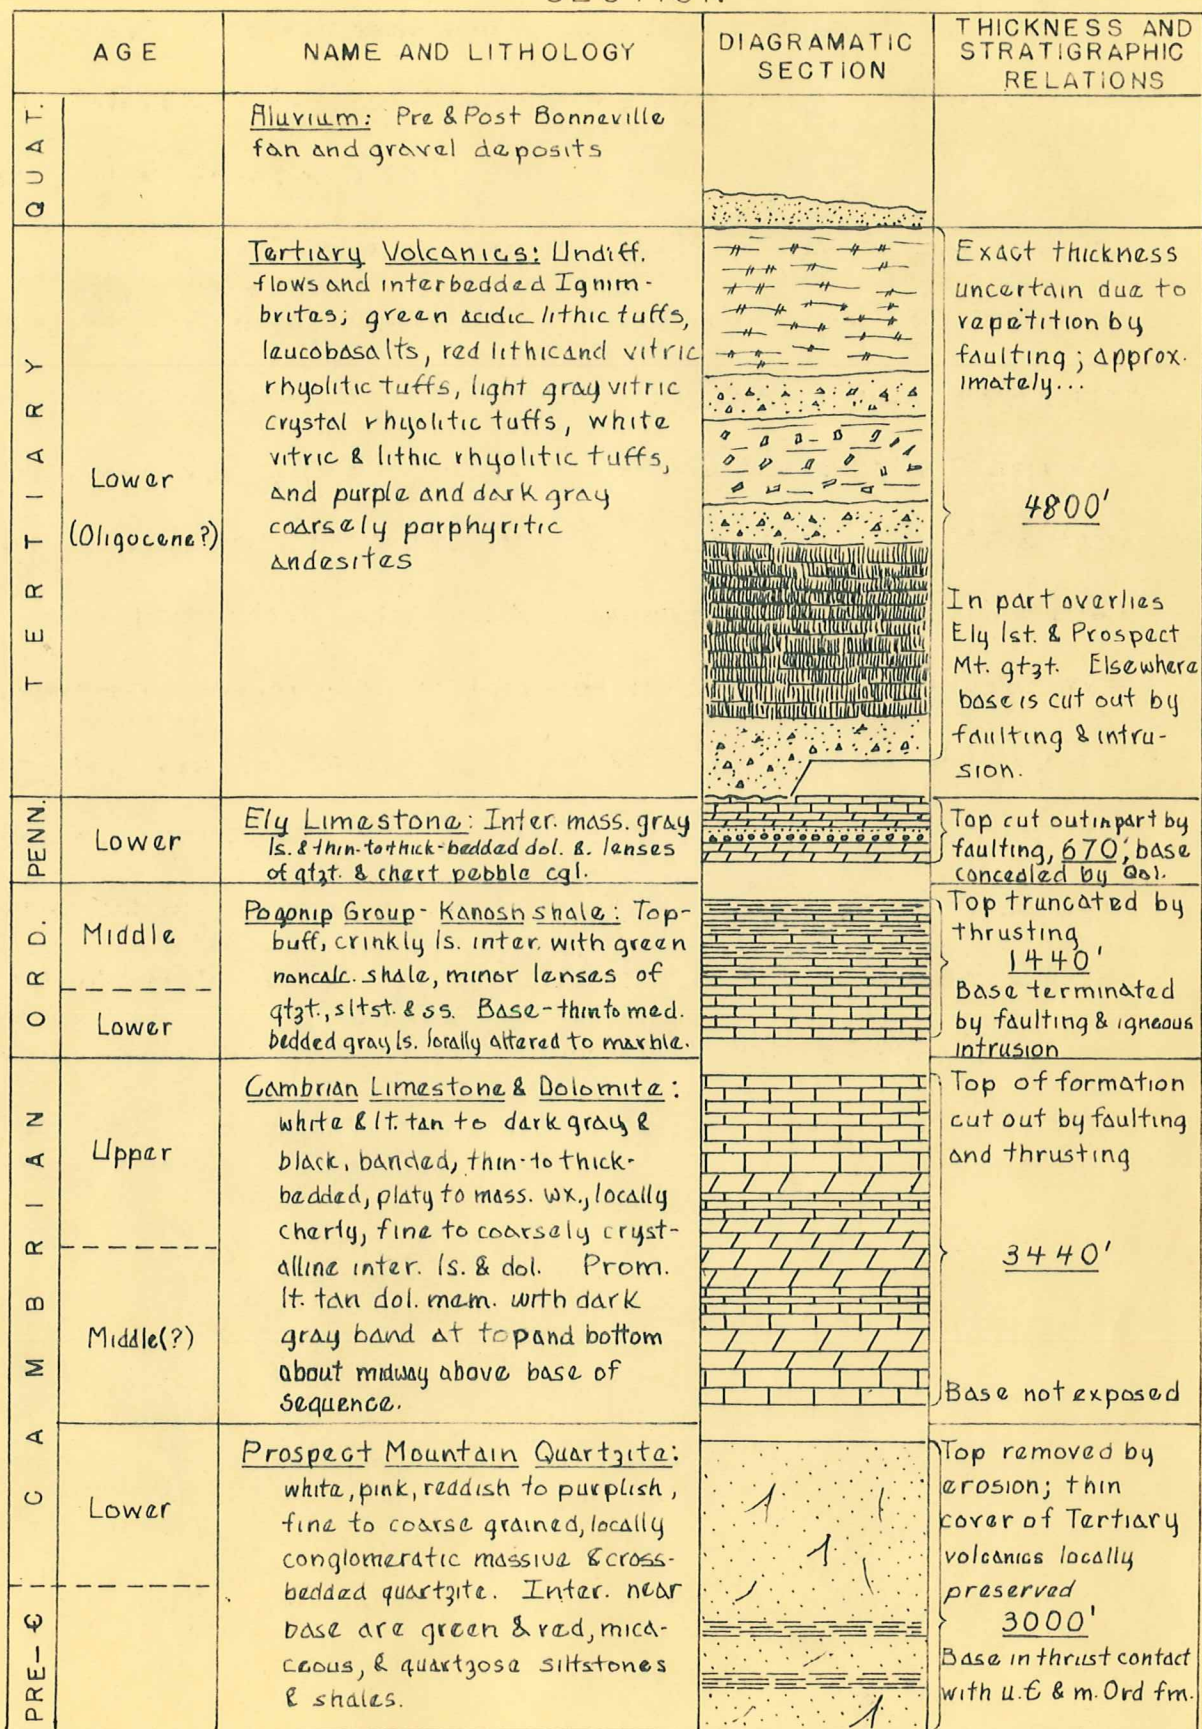 AGE
NAME AND LITHOLOGY
DIAGRAMATIC
SECTION
THICKNESS AND
STRATIGRAPHIC
RELATIONS
QUAT.
Aluvium: Pre & Post Bonneville
fan and gravel deposits
TERTIARY
Lower
(Oligocene?)
Tertiary Volcanics: Undiff.
flows and interbedded Ignim-
brites; green acidic lithic tuffs,
leucobasalts, red lithic and vitric
rhyolitic tuffs, light gray vitric
crystal rhyolitic tuffs, white
vitric & lithic rhyolitic tuffs,
and purple and dark gray
coarsely porphyritic
andesites
Exact thickness
uncertain due to
repetition by
faulting; approx.
imately...
4800'
In part overlies
Ely lst. & Prospect
Mt. qtzt. Elsewhere
base is cut out by
faulting & intru-
sion.
PENN.
Lower
Ely Limestone: Inter. mass. gray
ls. & thin-to thick-bedded dol. & lenses
of qtzt. & chert pebble cgl.
Top cut out in part by
faulting, 670', base
concealed by Qal.
ORD.
Middle
Lower
Pogonip Group - Kanosh shale: Top-
buff, crinkly ls. inter. with green
noncalc. shale, minor lenses of
qtzt., sltst. & ss. Base - thin to med.
bedded gray ls. locally altered to marble.
Top truncated by
thrusting
1440'
Base terminated
by faulting & igneous
intrusion
CAMBRIAN
Upper
Middle(?)
Cambrian Limestone & Dolomite:
white & lt. tan to dark gray &
black, banded, thin-to thick-
bedded, platy to mass. wx., locally
cherty, fine to coarsely cryst-
alline inter. ls. & dol. Prom.
lt. tan dol. mem. with dark
gray band at top and bottom
about midway above base of
sequence.
Top of formation
cut out by faulting
and thrusting
3440'
Base not exposed
Lower
PRE-Є
Prospect Mountain Quartzite:
white, pink, reddish to purplish,
fine to coarse grained, locally
conglomeratic massive & cross-
bedded quartzite. Inter. near
base are green & red, mica-
ceous, & quartzose siltstones
& shales.
Top removed by
erosion; thin
cover of Tertiary
volcanics locally
preserved
3000'
Base in thrust contact
with u.Є & m. Ord fm.